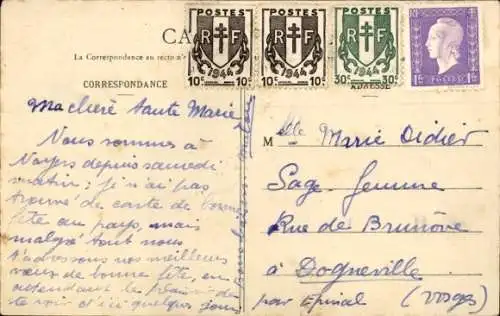 CA
La Correspondance au recto
CORRESPONDANCE
POSTES
RF
1944
10c 10c
POSTES
RF
1944
10c 10c
POSTES
RF
1944
30c 30c
RF
POSTES
ADRESSE
Ma chère Tante Marie,
Nous sommes à
depuis samedi
matin ; je n'ai pas
trouvé de carte de bonne
fête au pays, mais
malgré tout nous
t'adressons nos meilleurs
vœux de bonne fête, en
attendant le plaisir de
te voir d'ici quelques jours
M lle Marie Didier
Sage Femme
Rue de Brunôve
à Dogneville
par Epinal (Vosges)